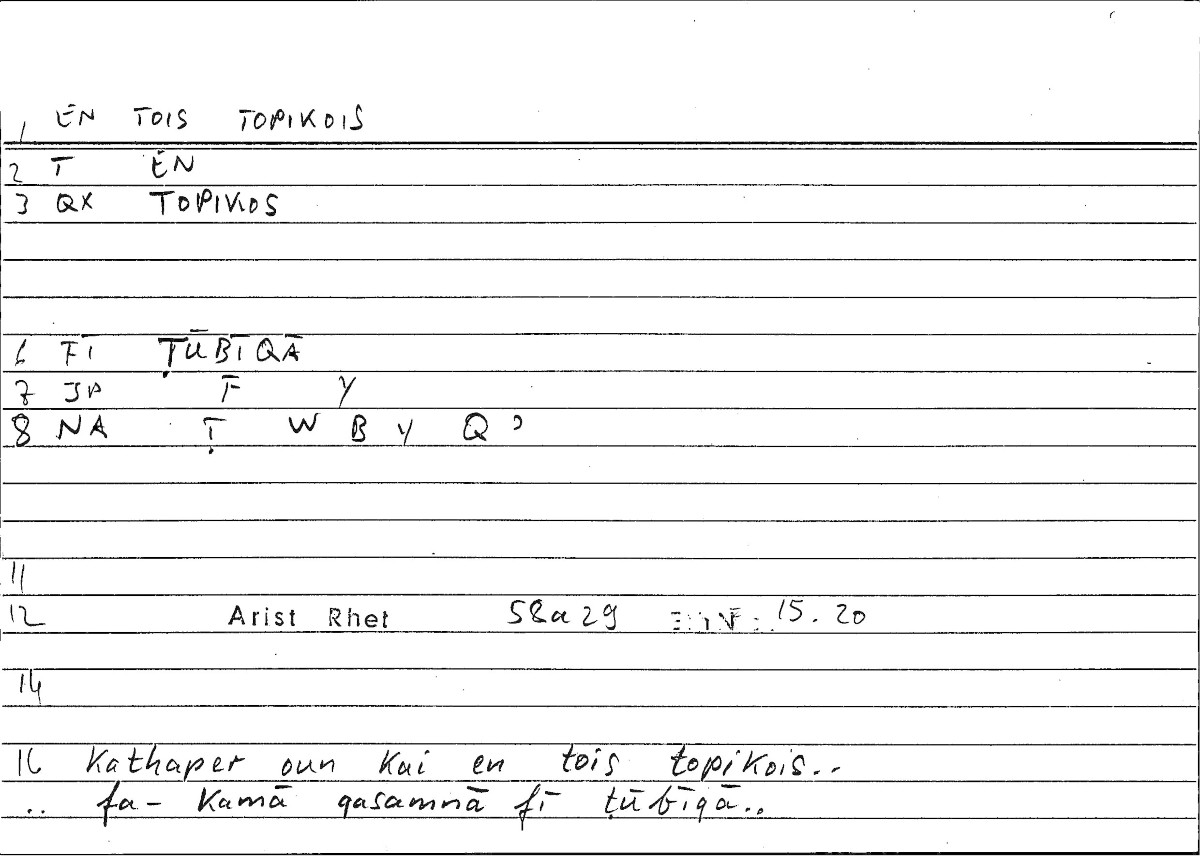 1 EN TOIS TOPIKOIS
2 T EN
3 QX TOPIKOS
6 FĪ ṬŪBĪQĀ
7 JP F Y
8 NA Ṭ W B Y Q ʾ
11
12 Arist Rhet 58a29 15.20
14
16 Kathaper oun kai en tois topikois..
.. fa- kamā qasamnā fī ṭūbīqā..